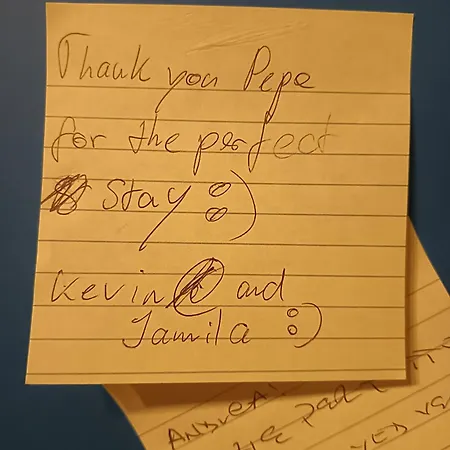 Thank you Pepe
for the perfect
Stay :)
Kevin and
Jamila :)
ANDREA!